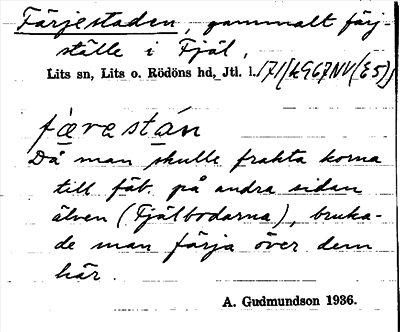 Färjestaden, gammalt färj-
ställe i Fjäl,
Lits sn, Lits o. Rödöns hd, Jtl. l.
få̀restán
Då man skulle frakta korna
till fäb. på andra sidan
älven (Fjälbodarna), bruka-
de man färja över dem
här.
A. Gudmundson 1936.